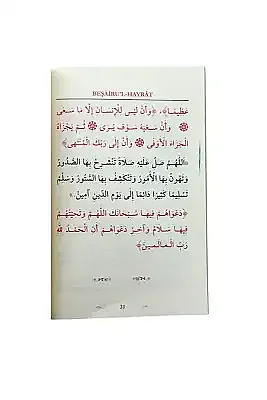 BEŞÂİRU'L-HAYRÂT
عَظِيمًا﴾، ﴿وَأَنْ لَيْسَ لِلْإِنْسَانِ إِلَّا مَا سَعَى
۞ وَأَنَّ سَعْيَهُ سَوْفَ يُرَى ۞ ثُمَّ يُجْزَاهُ
الْجَزَاءَ الْأَوْفَى ۞ وَأَنَّ إِلَى رَبِّكَ الْمُنْتَهَى﴾
«اَللَّهُمَّ صَلِّ عَلَيْهِ صَلَاةً تَنْشَرِحُ بِهَا الصُّدُورُ
وَتَهُونُ بِهَا الْأُمُورُ وَتَنْكَشِفُ بِهَا السُّتُورُ وَسَلِّمْ
تَسْلِيمًا كَثِيرًا دَائِمًا إِلَى يَوْمِ الدِّينِ آمِينَ».
﴿دَعْوَاهُمْ فِيهَا سُبْحَانَكَ اللَّهُمَّ وَتَحِيَّتُهُمْ
فِيهَا سَلَامٌ وَآخِرُ دَعْوَاهُمْ أَنِ الْحَمْدُ لِلَّهِ
رَبِّ الْعَالَمِينَ﴾